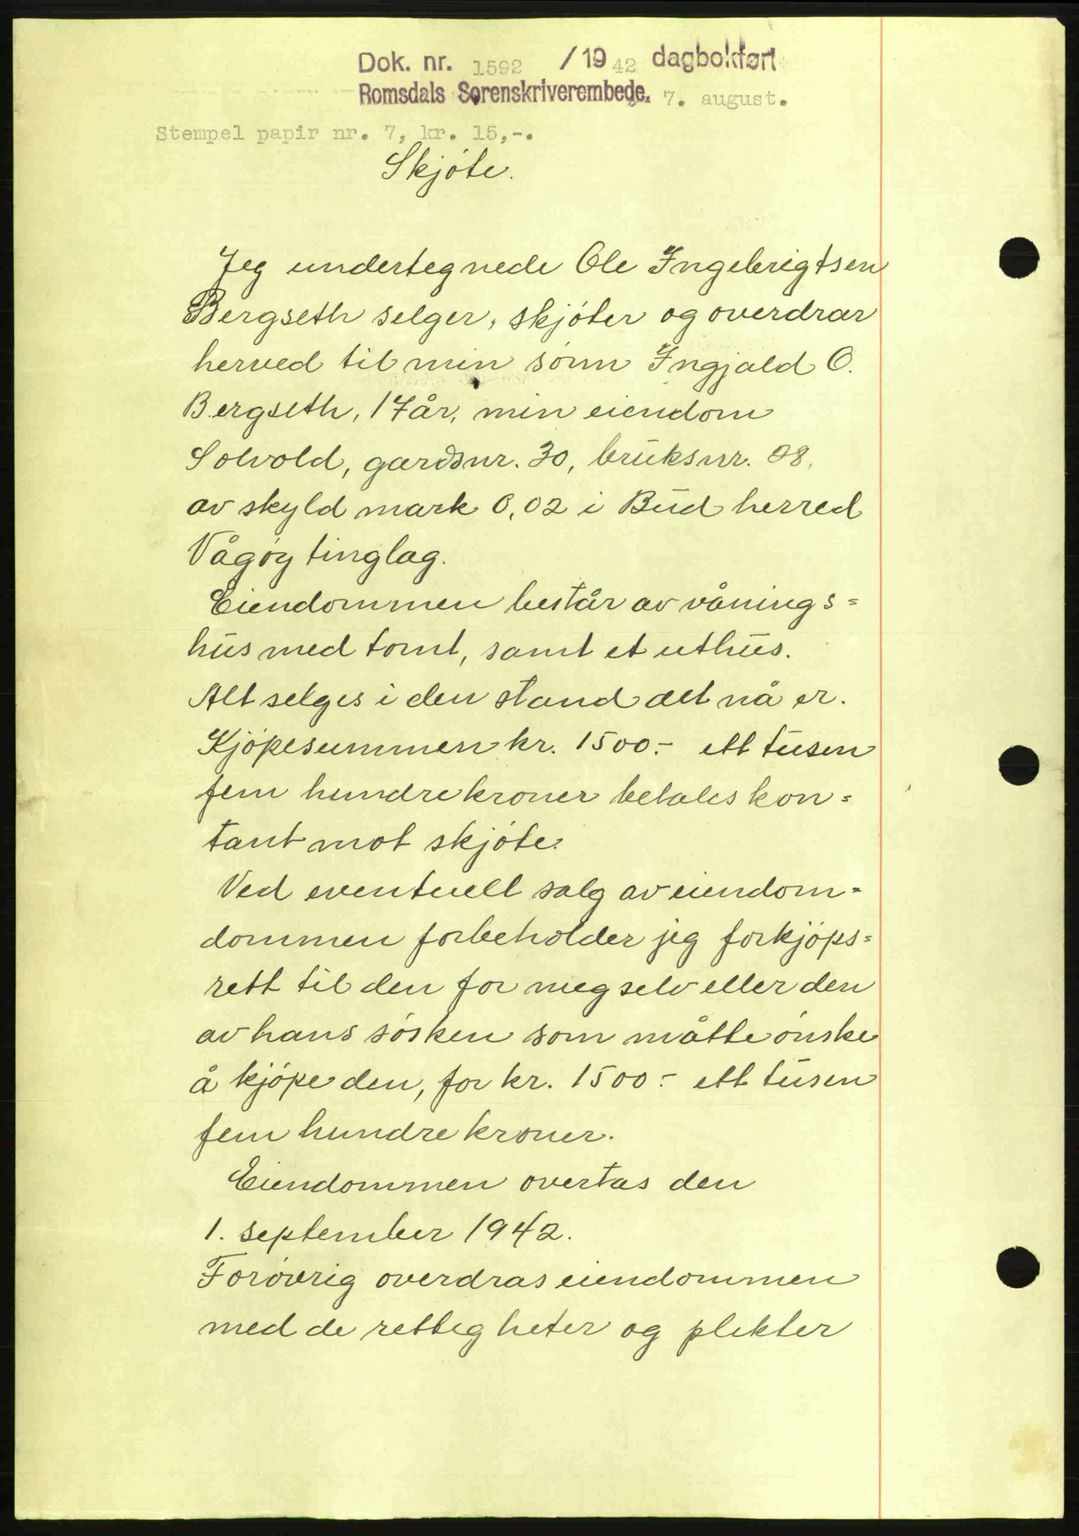 Dok. nr. 1592 / 19 42 dagbokført
Romsdals Sorenskriverembede. 7. august.
Stempel papir nr. 7, kr. 15,-.
Skjøte.
Jeg undertegnede Ole Ingebrigtsen
Bergseth selger, skjøter og overdrar
herved til min sønn Ingjald O.
Bergseth, 17 år, min eiendom
Solvold, gardsnr. 30, bruksnr. 98,
av skyld mark 0,02 i Bud herred
Vågøy tinglag.
Eiendommen består av vånings=
hus med tomt, samt et uthus.
Alt selges i den stand det nå er.
Kjøpesummen kr. 1500.- ett tusen
fem hundre kroner betales kon=
tant mot skjøte.
Ved eventuell salg av eiendom=
dommen forbeholder jeg forkjøps=
rett til den for meg selv eller den
av hans søsken som måtte ønske
å kjøpe den, for kr. 1500.- ett tusen
fem hundre kroner.
Eiendommen overtas den
1. september 1942.
Forøvrig overdras eiendommen
med de rettigheter og plikter